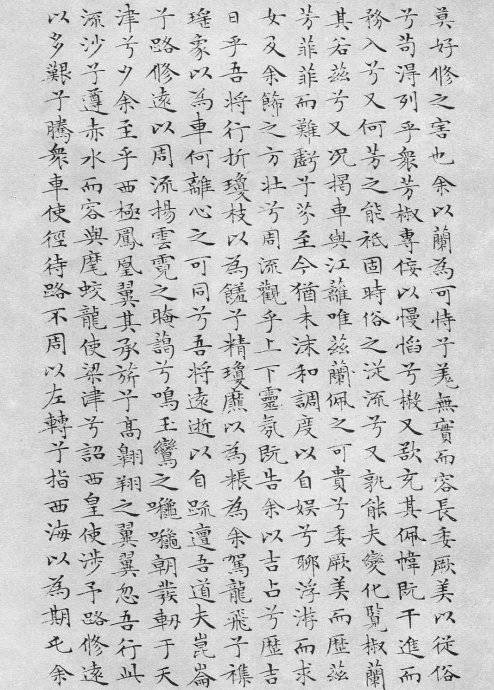 莫好修之害也余以蘭為可恃兮羌無實而容長委厥美以從俗
兮苟得列乎衆芳椒專佞以慢慆兮樧又欲充其佩幃既干進而
務入兮又何芳之能祗固時俗之從流兮又孰能夫變化覧椒蘭
其若茲兮又況揭車與江離唯茲蘭佩之可貴兮委厥美而歷茲
芳菲菲而難虧兮芬至今猶未沬和調度以自娛兮聊浮游而求
女及余飾之方壯兮周流觀乎上下靈氛既告余以吉占兮歷吉
日乎吾將行折瓊枝以為饈兮精瓊爢以為粻為余駕龍飛兮襍
瑤象以為車何離心之可同兮吾將遠逝以自疏邅吾道夫崑崙
兮路修遠以周流揚雲霓之晻藹兮鳴玉鸞之朝發軔于天
津兮夕余至乎西極鳳凰翼其承旂兮高翺翔之翼翼忽吾行此
流沙兮遵赤水而容與麾蛟龍使梁津兮詔西皇使涉予路修遠
以多艱兮騰衆車使徑待路不周以左轉兮指西海以為期屯余